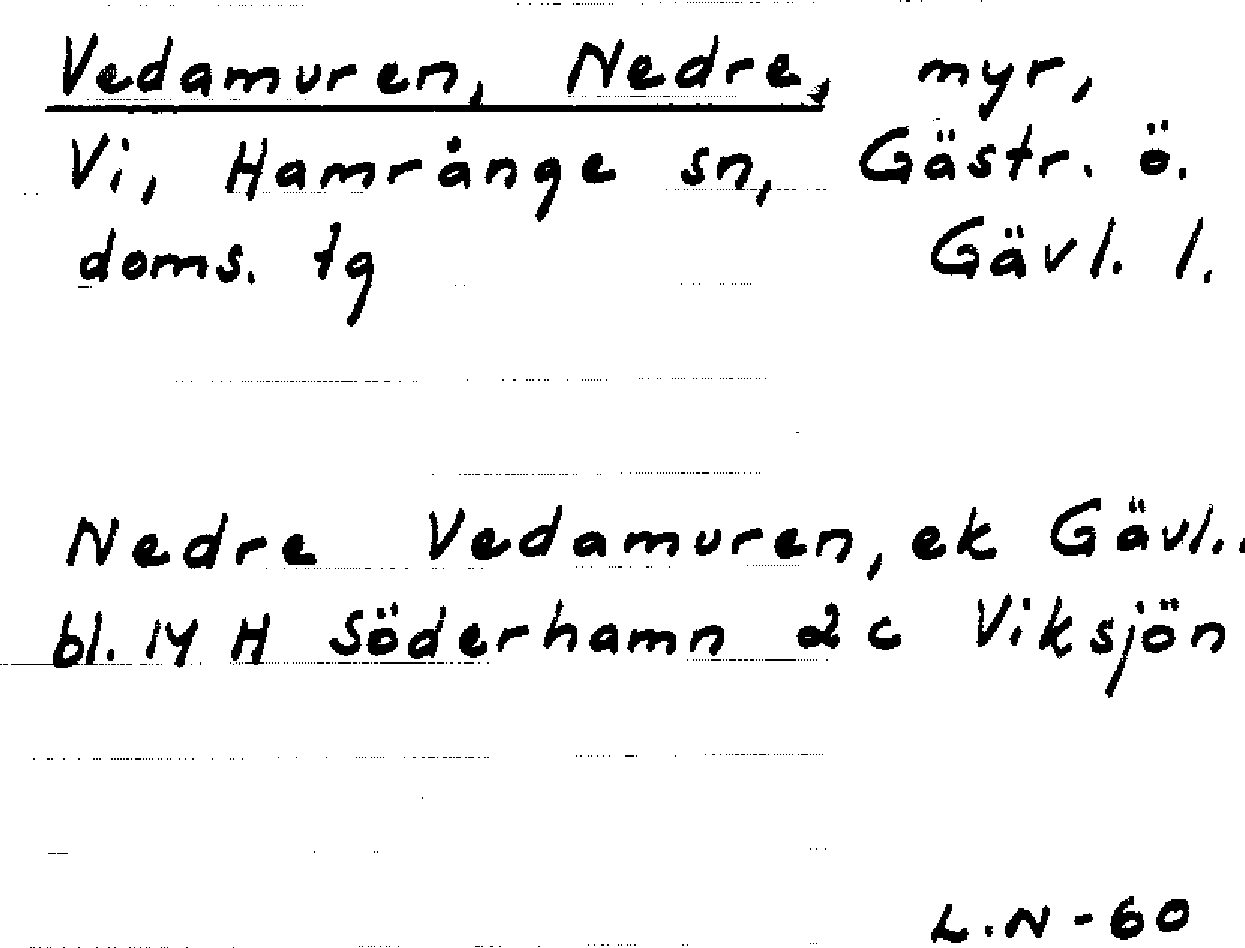 Vedamuren, Nedre, myr,
Vi, Hamrånge sn, Gästr. ö.
doms. tg Gävl. l.
Nedre Vedamuren, ek Gävl..
bl. 14 H Söderhamn 2 c Viksjön
L.N-60